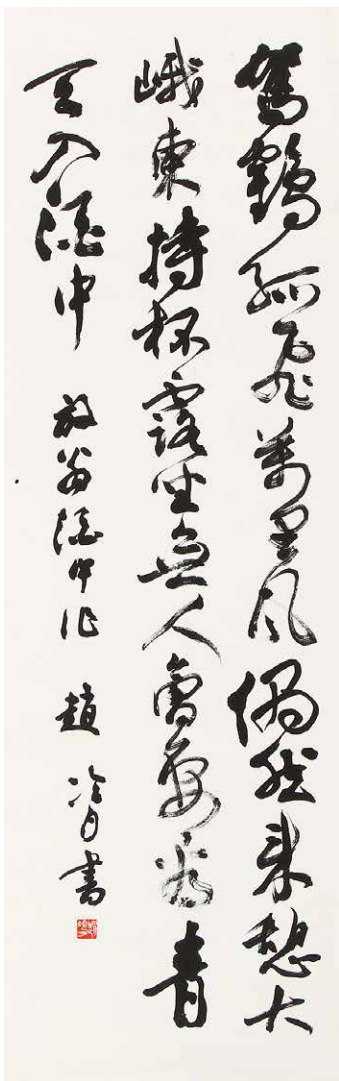 駕鶴孤飛萬里風偶然來憩大
峨東持杯露坐無人會要看青
天入酒中 放翁酒中作 趙冷月書